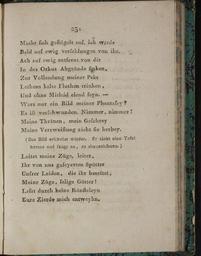 231
Macht sich geflügelt auf, ich werde
Bald auf ewig verschlungen von ihr,
Ach auf ewig entfernt von dir
In des Orkus Abgründe sinken,
Zur Vollendung meiner Pein
Lethens kalte Fluthen trinken,
Und ohne Mitleid elend seyn. —
Wars nur ein Bild meiner Phantasey?
Es ist verschwunden. Nimmer, nimmer!
Meine Thränen, mein Geschrey
Meine Verzweiflung zieht sie herbey.
(Das Bild erscheint wieder. Er zieht eine Tafel
hervor und fängt an, es abzuzeichnen.)
Leitet meine Züge, leitet,
Ihr von uns gefeyerten Götter
Unsrer Leiden, die ihr bereitet,
Meine Züge, selige Götter!
Laßt durch keine
Eure Zierde mich entweyhn.